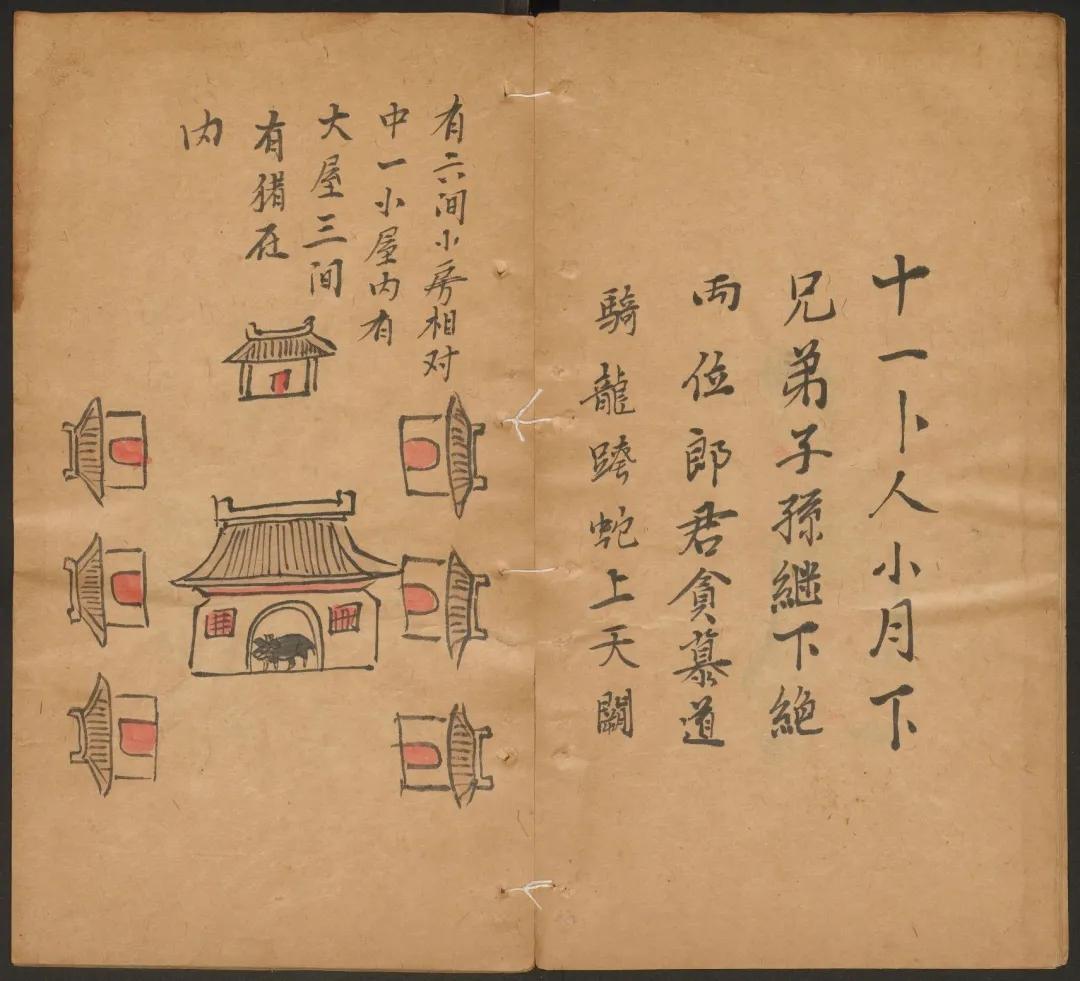 十一卜人小月下
兄弟子孫継下絶
両位郎君貪慕道
騎龍跨蛇上天闗
有六间小房相对
中一小屋内有
大屋三间
有猪在
内